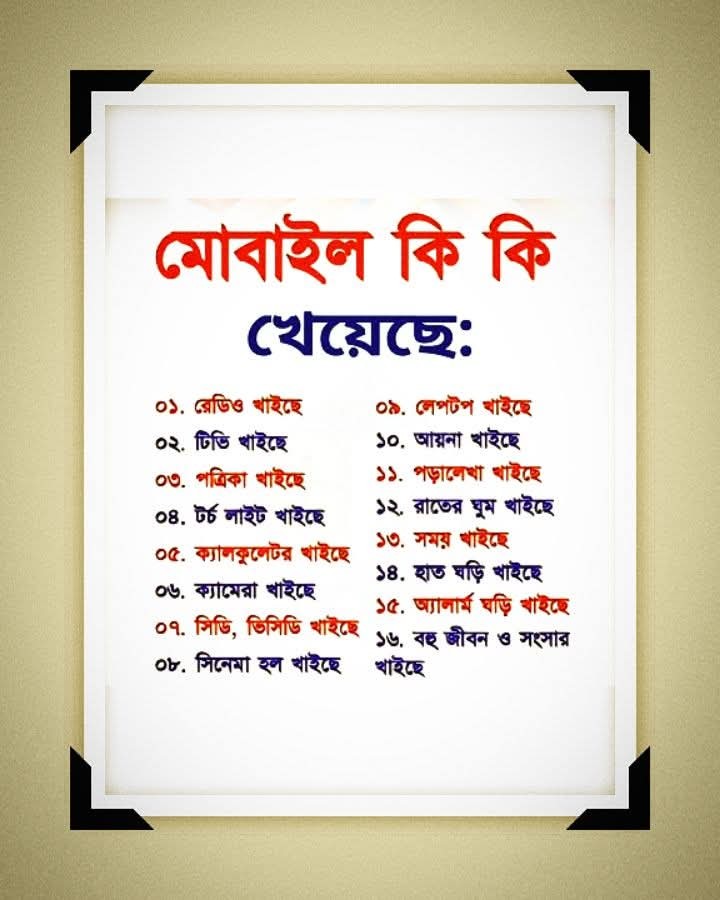 মোবাইল কি কি
খেয়েছে:
০১. রেডিও খাইছে
০২. টিভি খাইছে
০৩. পত্রিকা খাইছে
০৪. টর্চ লাইট খাইছে
০৫. ক্যালকুলেটর খাইছে
০৬. ক্যামেরা খাইছে
০৭. সিডি, ভিসিডি খাইছে
০৮. সিনেমা হল খাইছে
০৯. লেপটপ খাইছে
১০. আয়না খাইছে
১১. পড়ালেখা খাইছে
১২. রাতের ঘুম খাইছে
১৩. সময় খাইছে
১৪. হাত ঘড়ি খাইছে
১৫. অ্যালার্ম ঘড়ি খাইছে
১৬. বহু জীবন ও সংসার
খাইছে